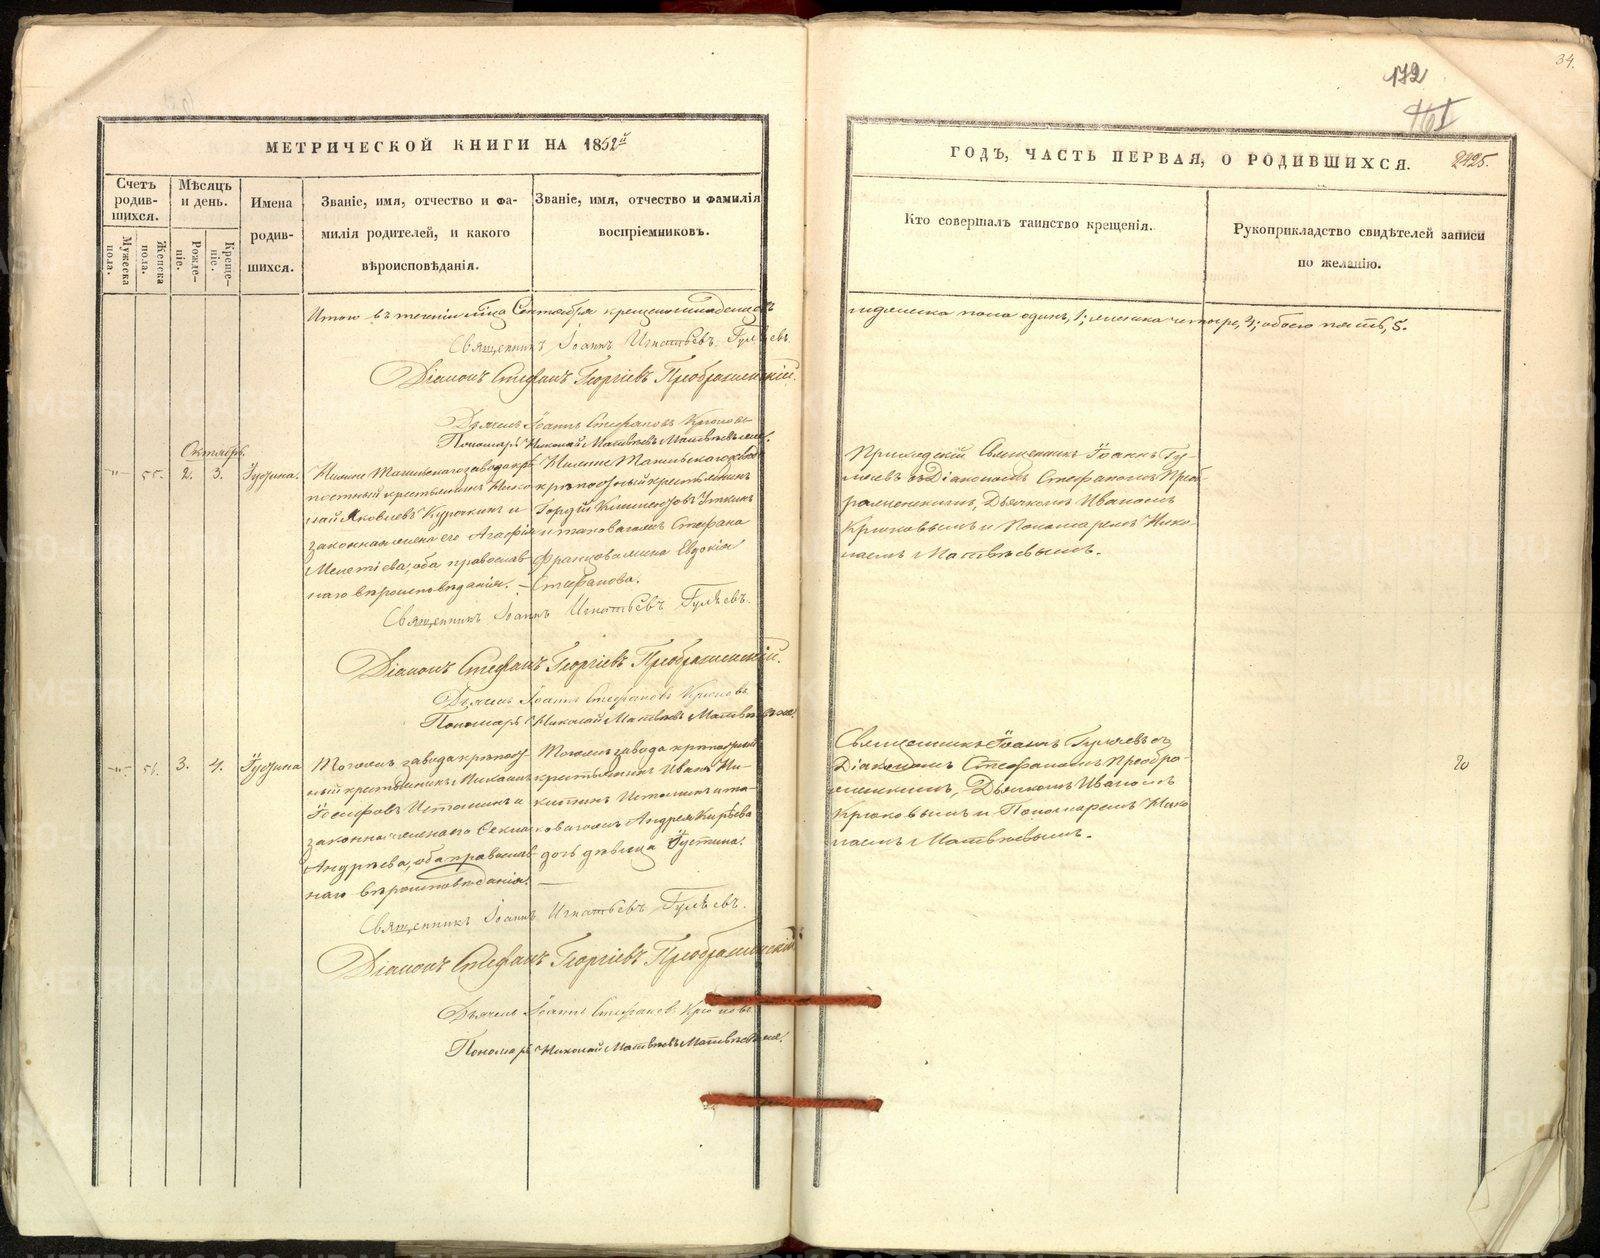 172
34.
461
МЕТРИЧЕСКОЙ КНИГИ НА 1852й
ГОДЪ, ЧАСТЬ ПЕРВАЯ, О РОДИВШИХСЯ.
2425.
Счетъ родив-шихся.
Мужеска пола.
Женска пола.
Мѣсяцъ и день.
Рожде-ніе.
Креще-ніе.
Имена
родив-
шихся.
Званіе, имя, отчество и фа-
милія родителей, и какого
вѣроисповѣданія.
Званіе, имя, отчество и фамилія
воспріемниковъ.
Кто совершалъ таинство крещенія.
Рукоприкладство свидѣтелей записи
по желанію.
Итого въ теченіи м-ца Сентября крещено младенцевъ
мужеска пола одинъ, 1; женска четыре, 4; обоего пять, 5.
Священникъ Іоаннъ Игнатьевъ Гуляевъ.
Діаконъ Стефанъ Георгіевъ Преображенскій.
Дьячекъ Іоаннъ Стефановъ Крюковъ
Пономарь Николай Матвѣевъ Матвѣевыхъ.
Октябрь.
55. 2. 3. Іустина.
Нижне Тагильскаго завода крѣ-
постный крестьянинъ Нико-
лай Яковлевъ Курочкинъ и
законная жена его Агафія
Мелетіева, оба православ-
наго вѣроисповѣданія. –
Нижне Тагильскаго завода
крѣпостный крестьянинъ
Гордѣй Климентовъ Уткинъ
и таковагожъ Стефана
Французова жена Евдокія
Стефанова.
Приходскій Священникъ Іоаннъ Гу-
ляевъ съ Діакономъ Стефаномъ Преоб-
раженскимъ, Дьячкомъ Иваномъ
Крюковымъ и Пономаремъ Нико-
лаемъ Матвѣевымъ.
Священникъ Іоаннъ Игнатьевъ Гуляевъ.
Діаконъ Стефанъ Георгіевъ Преображенскій.
Дьячекъ Іоаннъ Стефановъ Крюковъ.
Пономарь Николай Матвѣевъ Матвѣевыхъ.
56. 3. 4. Іустина
Тогожъ завода крѣпост-
ный крестьянинъ Михаилъ
Іосифовъ Истоминъ и
законная жена его Секлетинія
Андрѣева, оба православ-
наго вѣроисповѣданія.
Тогожъ завода крѣпостный
крестьянинъ Иванъ Ни-
китинъ Истоминъ и та-
ковагожъ Андрея Кирѣева
дочь дѣвица Іустина.
Священникъ Іоаннъ Гуляевъ съ
Діакономъ Стефаномъ Преобра-
женскимъ, Дьячкомъ Иваномъ
Крюковымъ и Пономаремъ Нико-
лаемъ Матвѣевымъ.
Священникъ Іоаннъ Игнатьевъ Гуляевъ.
Діаконъ Стефанъ Георгіевъ Преображенскій
Дьячекъ Іоаннъ Стефановъ Крюковъ.
Пономарь Николай Матвѣевъ Матвѣевыхъ.